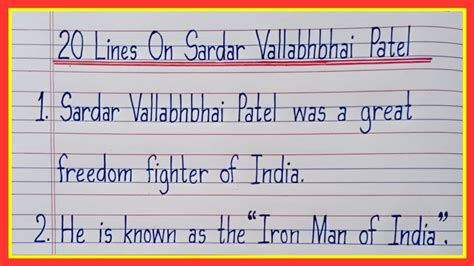 20 Lines On Sardar Vallabhbhai Patel
1. Sardar Vallabhbhai Patel was a great
freedom fighter of India.
2. He is known as the "Iron Man of India".